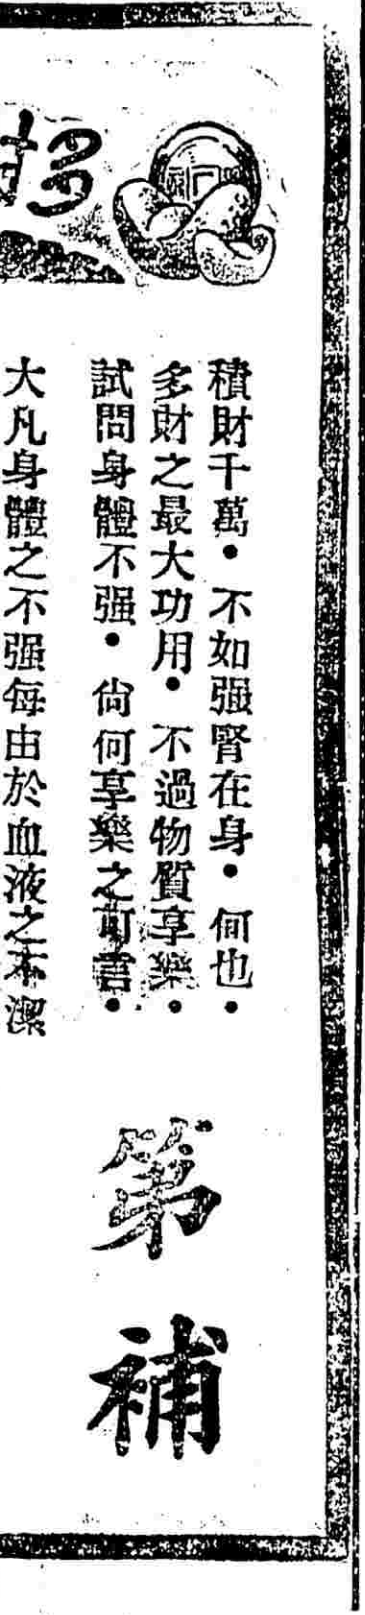 積財千萬•不如强腎在身•何也•
多財之最大功用•不過物質享樂•
試問身體不强•尙何享樂之可言•
大凡身體之不强每由於血液之不潔
第
補